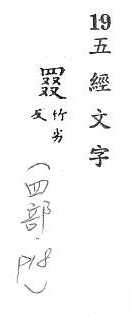 19五經文字
罬竹劣反
(四部·P18)